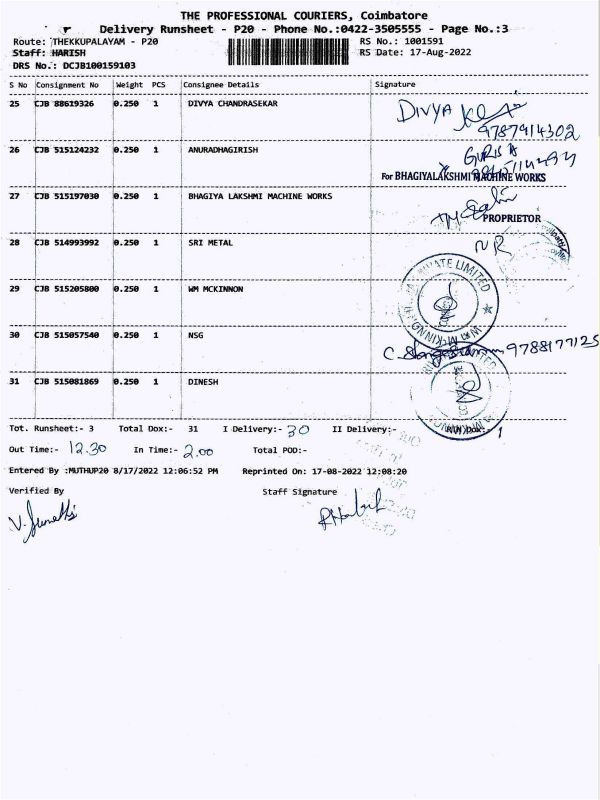 THE PROFESSIONAL COURIERS, Coimbatore
Delivery Runsheet - P20 - Phone No.:0422-3505555 - Page No.:3
Route: THEKKUPALAYAM - P20 RS No.: 1001591
Staff: HARISH RS Date: 17-Aug-2022
DRS No.: DCJB100159103
S No Consignment No Weight PCS Consignee Details Signature
25 CJB 88619326 0.250 1 DIVYA CHANDRASEKAR DIVYA
9787914302
26 CJB 515124232 0.250 1 ANURADHAGIRISH
For BHAGIYALAKSHMI MACHINE WORKS
27 CJB 515197030 0.250 1 BHAGIYA LAKSHMI MACHINE WORKS
PROPRIETOR
28 CJB 514993992 0.250 1 SRI METAL NR
29 CJB 515205800 0.250 1 WM MCKINNON
PRIVATE LIMITED
30 CJB 515057540 0.250 1 NSG
9788177125
31 CJB 515081869 0.250 1 DINESH
Tot. Runsheet:- 3 Total Dox:- 31 I Delivery:- 30 II Delivery:-
Out Time:- 12.30 In Time:- 2.00 Total POD:-
Entered By :MUTHUP20 8/17/2022 12:06:52 PM Reprinted On: 17-08-2022 12:08:20
Verified By Staff Signature